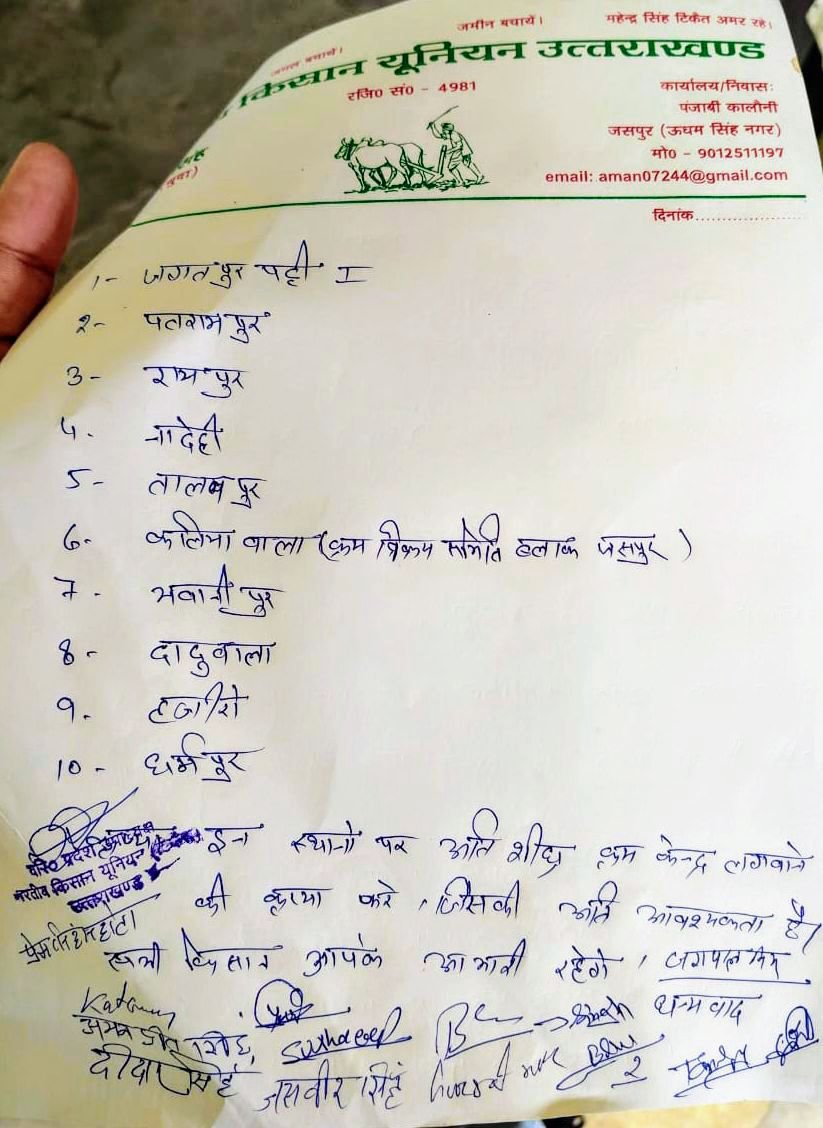 जंगल बचाये। जमीन बचाये। महेन्द्र सिंह टिकैत अमर रहे।
किसान यूनियन उत्तराखण्ड
रजि0 सं0 - 4981
कार्यालय/निवासः
पंजाबी कालौनी
जसपुर (ऊधम सिंह नगर)
मो0 - 9012511197
email: aman07244@gmail.com
युवा)
दिनांक
1- जगतपुर पट्टी I
2- पतरामपुर
3- रामपुर
4. नादेही
5- तालबपुर
6- कलियावाला (क्रय विक्रय समिति हलाक जसपुर)
7- भवानीपुर
8- दादुवाला
9. हजीरो
10- धर्मपुर
इन स्थानो पर अति शीघ्र क्रय केन्द्र लगवाने
की कृपा करे, जिसकी अति आवश्यकता है।
सभी किसान आपके आभारी रहेगे। जगपाल सिंह
धन्यवाद
वरि0 प्रदेश
भारतीय किसान यूनियन
उत्तराखण्ड
प्रेम
सिंह,
दीदार सिंह जसवीर सिंह